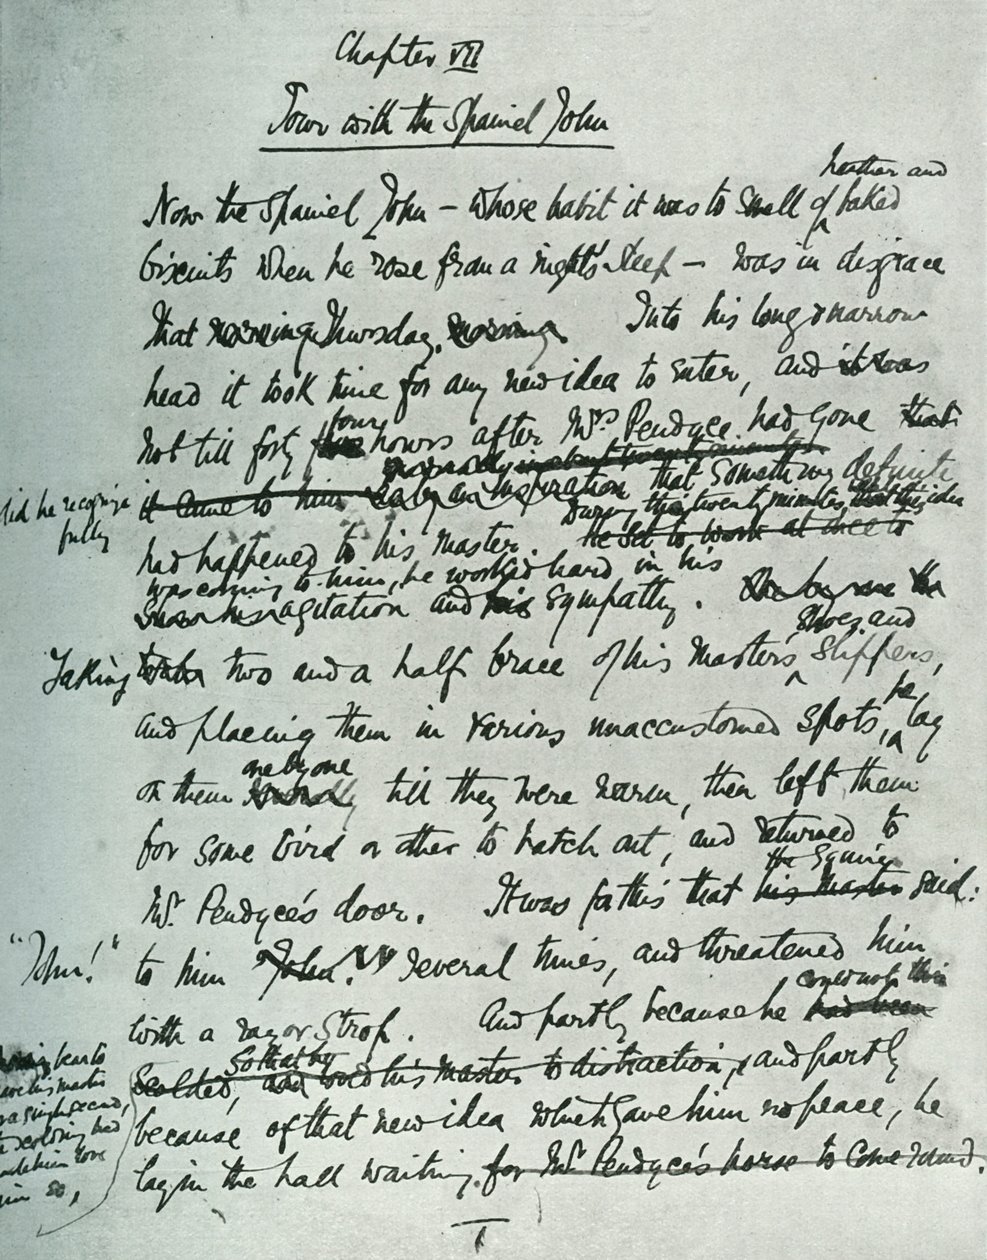 Chapter VII
Tour with the Spaniel John
heather and
Now the Spaniel John – whose habit it was to smell of baked
biscuits when he rose from a night's sleep – was in disgrace
that morning Thursday. morning Into his long & narrow
head it took time for any new idea to enter, and it was
four
not till forty hours after Mrs Pendyce had gone that
did he recognize
fully
it came to him that something definite
During the twenty minutes that this idea
He set to work at once to
had happened to his master.
was coming to him, he worked hard in his
agitation and his sympathy.
shoes and
Taking two and a half brace of his master's slippers,
he
and placing them in various unaccustomed spots, lay
one by one
on them till they were warm, then left them
for some bird or other to hatch out, and returned to
the Squire
Mr Pendyce's door. It was for this that his master said:
"John!" to him "John!" several times, and threatened him
could not
with a razor strop. And partly because he had been
So that by
scolded, and loved his master to distraction, and partly
bear to
leave his master
for a single second,
scolding had
made him love
him so,
because of that new idea which gave him no peace, he
lay in the hall waiting. for Mr Pendyce's horse to come round.